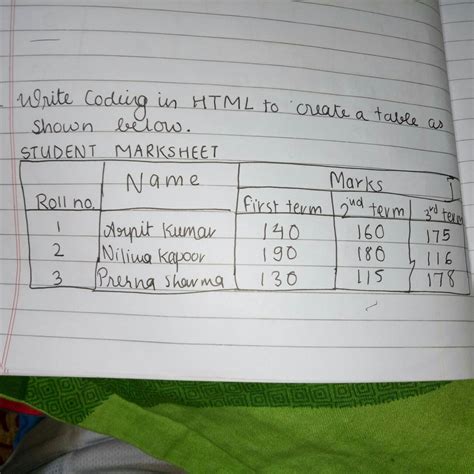 Write Coding in HTML to create a table as
shown below.
STUDENT MARKSHEET
Roll no. Name Marks
First term 2nd term 3rd term
1 Arpit Kumar 140 160 175
2 Kapoor 190 180 116
3 Prerna Sharma 130 115 178